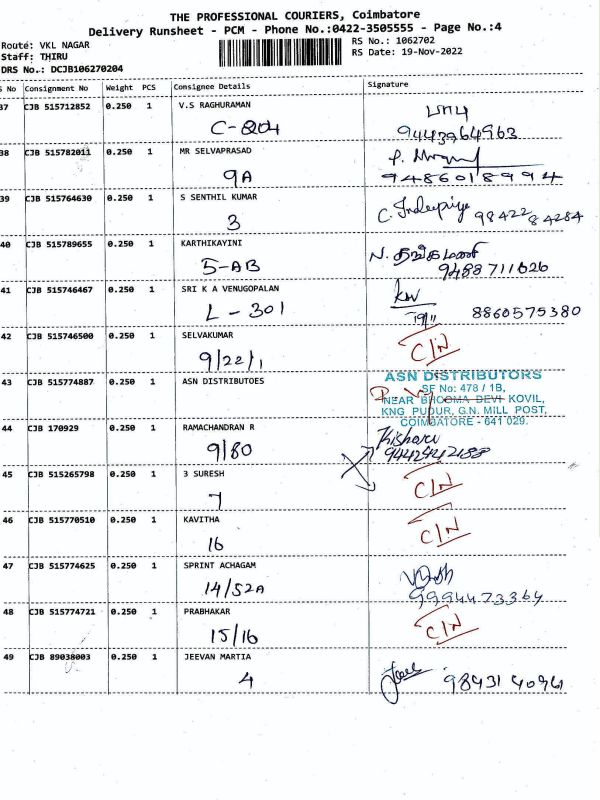 THE PROFESSIONAL COURIERS, Coimbatore
Delivery Runsheet - PCM - Phone No.:0422-3505555 - Page No.:4
Route: VKL NAGAR
RS No.: 1062702
Staff: THIRU
RS Date: 19-Nov-2022
DRS No.: DCJB106270204
S No Consignment No Weight PCS Consignee Details Signature
37 CJB 515712852 0.250 1 V.S RAGHURAMAN
C-204
9443964963
38 CJB 515782011 0.250 1 MR SELVAPRASAD
9A
9486018994
39 CJB 515764630 0.250 1 S SENTHIL KUMAR
3
C. Indupriya 98422 84284
40 CJB 515789655 0.250 1 KARTHIKAYINI
5-AB
N. தங்கமணி
9488711626
41 CJB 515746467 0.250 1 SRI K A VENUGOPALAN
L-301
19/11 8860575380
42 CJB 515746500 0.250 1 SELVAKUMAR
9/22/1
C/N
43 CJB 515774887 0.250 1 ASN DISTRIBUTOES
ASN DISTRIBUTORS
SF No: 478 / 1B,
NEAR BHOOMA DEVI KOVIL,
KNG PUDUR, G.N. MILL POST,
COIMBATORE - 641 029.
44 CJB 170929 0.250 1 RAMACHANDRAN R
9/80
Kishore
45 CJB 515265798 0.250 1 3 SURESH
7
C/N
46 CJB 515770510 0.250 1 KAVITHA
16
C/N
47 CJB 515774625 0.250 1 SPRINT ACHAGAM
14/52A
9994473364
48 CJB 515774721 0.250 1 PRABHAKAR
15/16
C/N
49 CJB 89038003 0.250 1 JEEVAN MARTIA
4
98431 40961